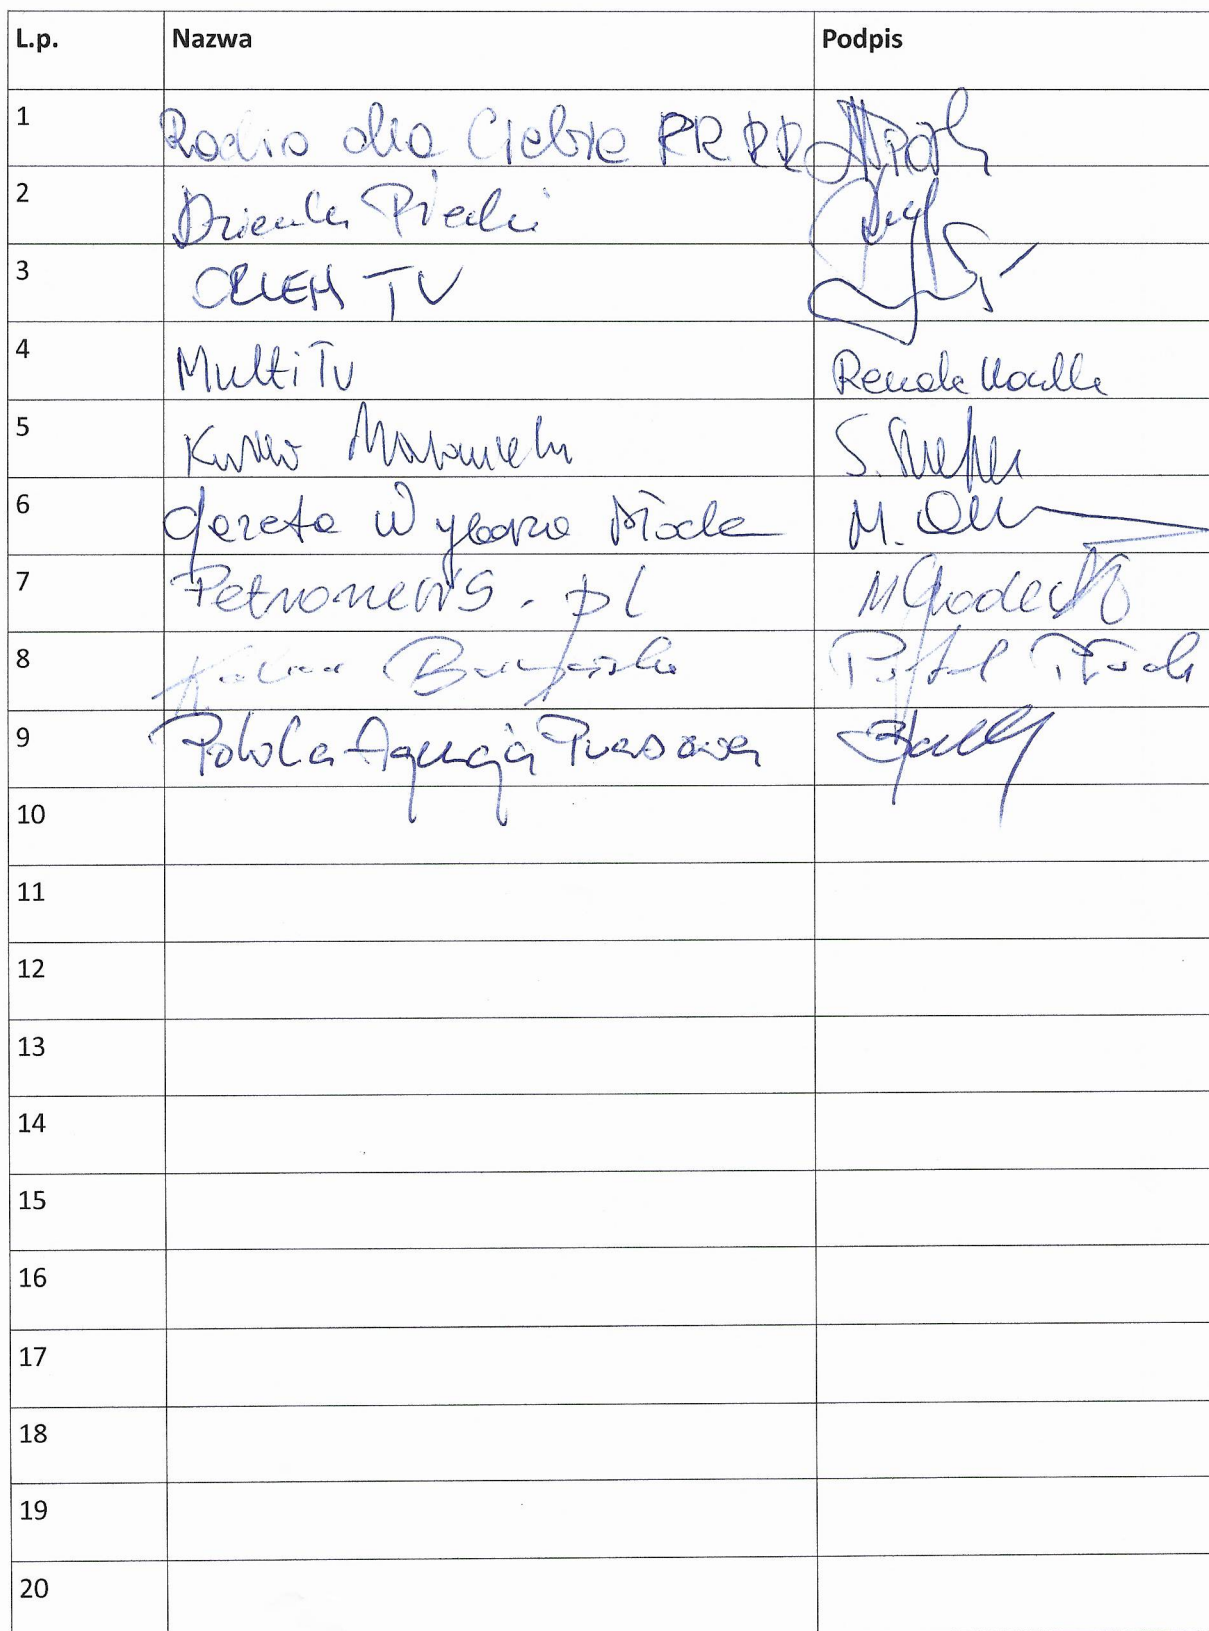 L.p. Nazwa Podpis
1 Radio dla Ciebie RR RR
2 Dziennik Płocki
3 ORLEN TV
4 Multi TV Renata
5 S.
6 Gazeta Wyborcza Płock M.
7 Petronews.pl M Grodecki
8 Portal Płock
9 Polska Agencja Prasowa
10
11
12
13
14
15
16
17
18
19
20